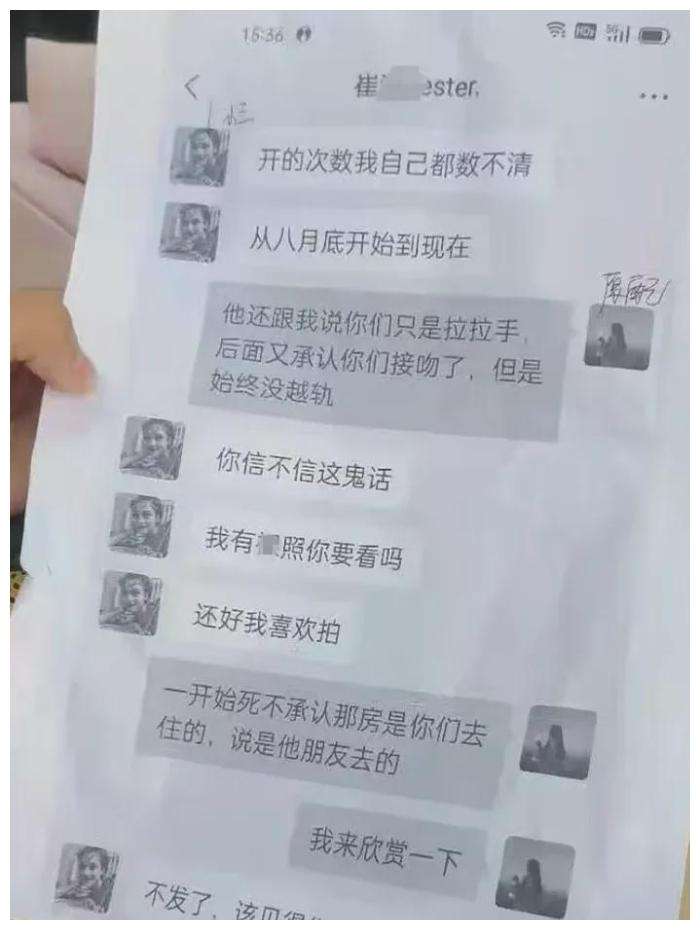 15:36
崔 ester.
开的次数我自己都数不清
从八月底开始到现在
他还跟我说你们只是拉拉手,
后面又承认你们接吻了，但是
始终没越轨
你信不信这鬼话
我有 照你要看吗
还好我喜欢拍
一开始死不承认那房是你们去
住的，说是他朋友去的
我来欣赏一下
不发了，该见得